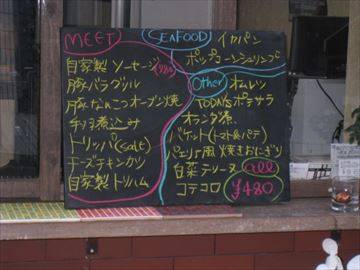 MEET
自家製 ソーセージ
豚バラグリル
豚なんこつオーブン焼
煮込み
トリッパ (salt)
チーズチキンカツ
自家製 トリハム
SEAFOOD
イカパン
ポップコーンシュリンプ
Other
オムレツ
TODAYsポテサラ
オランダ煮
バケット(トマト&パテ)
パエリア風 焼きおにぎり
白菜テリーヌ
コテコロ
all
¥480